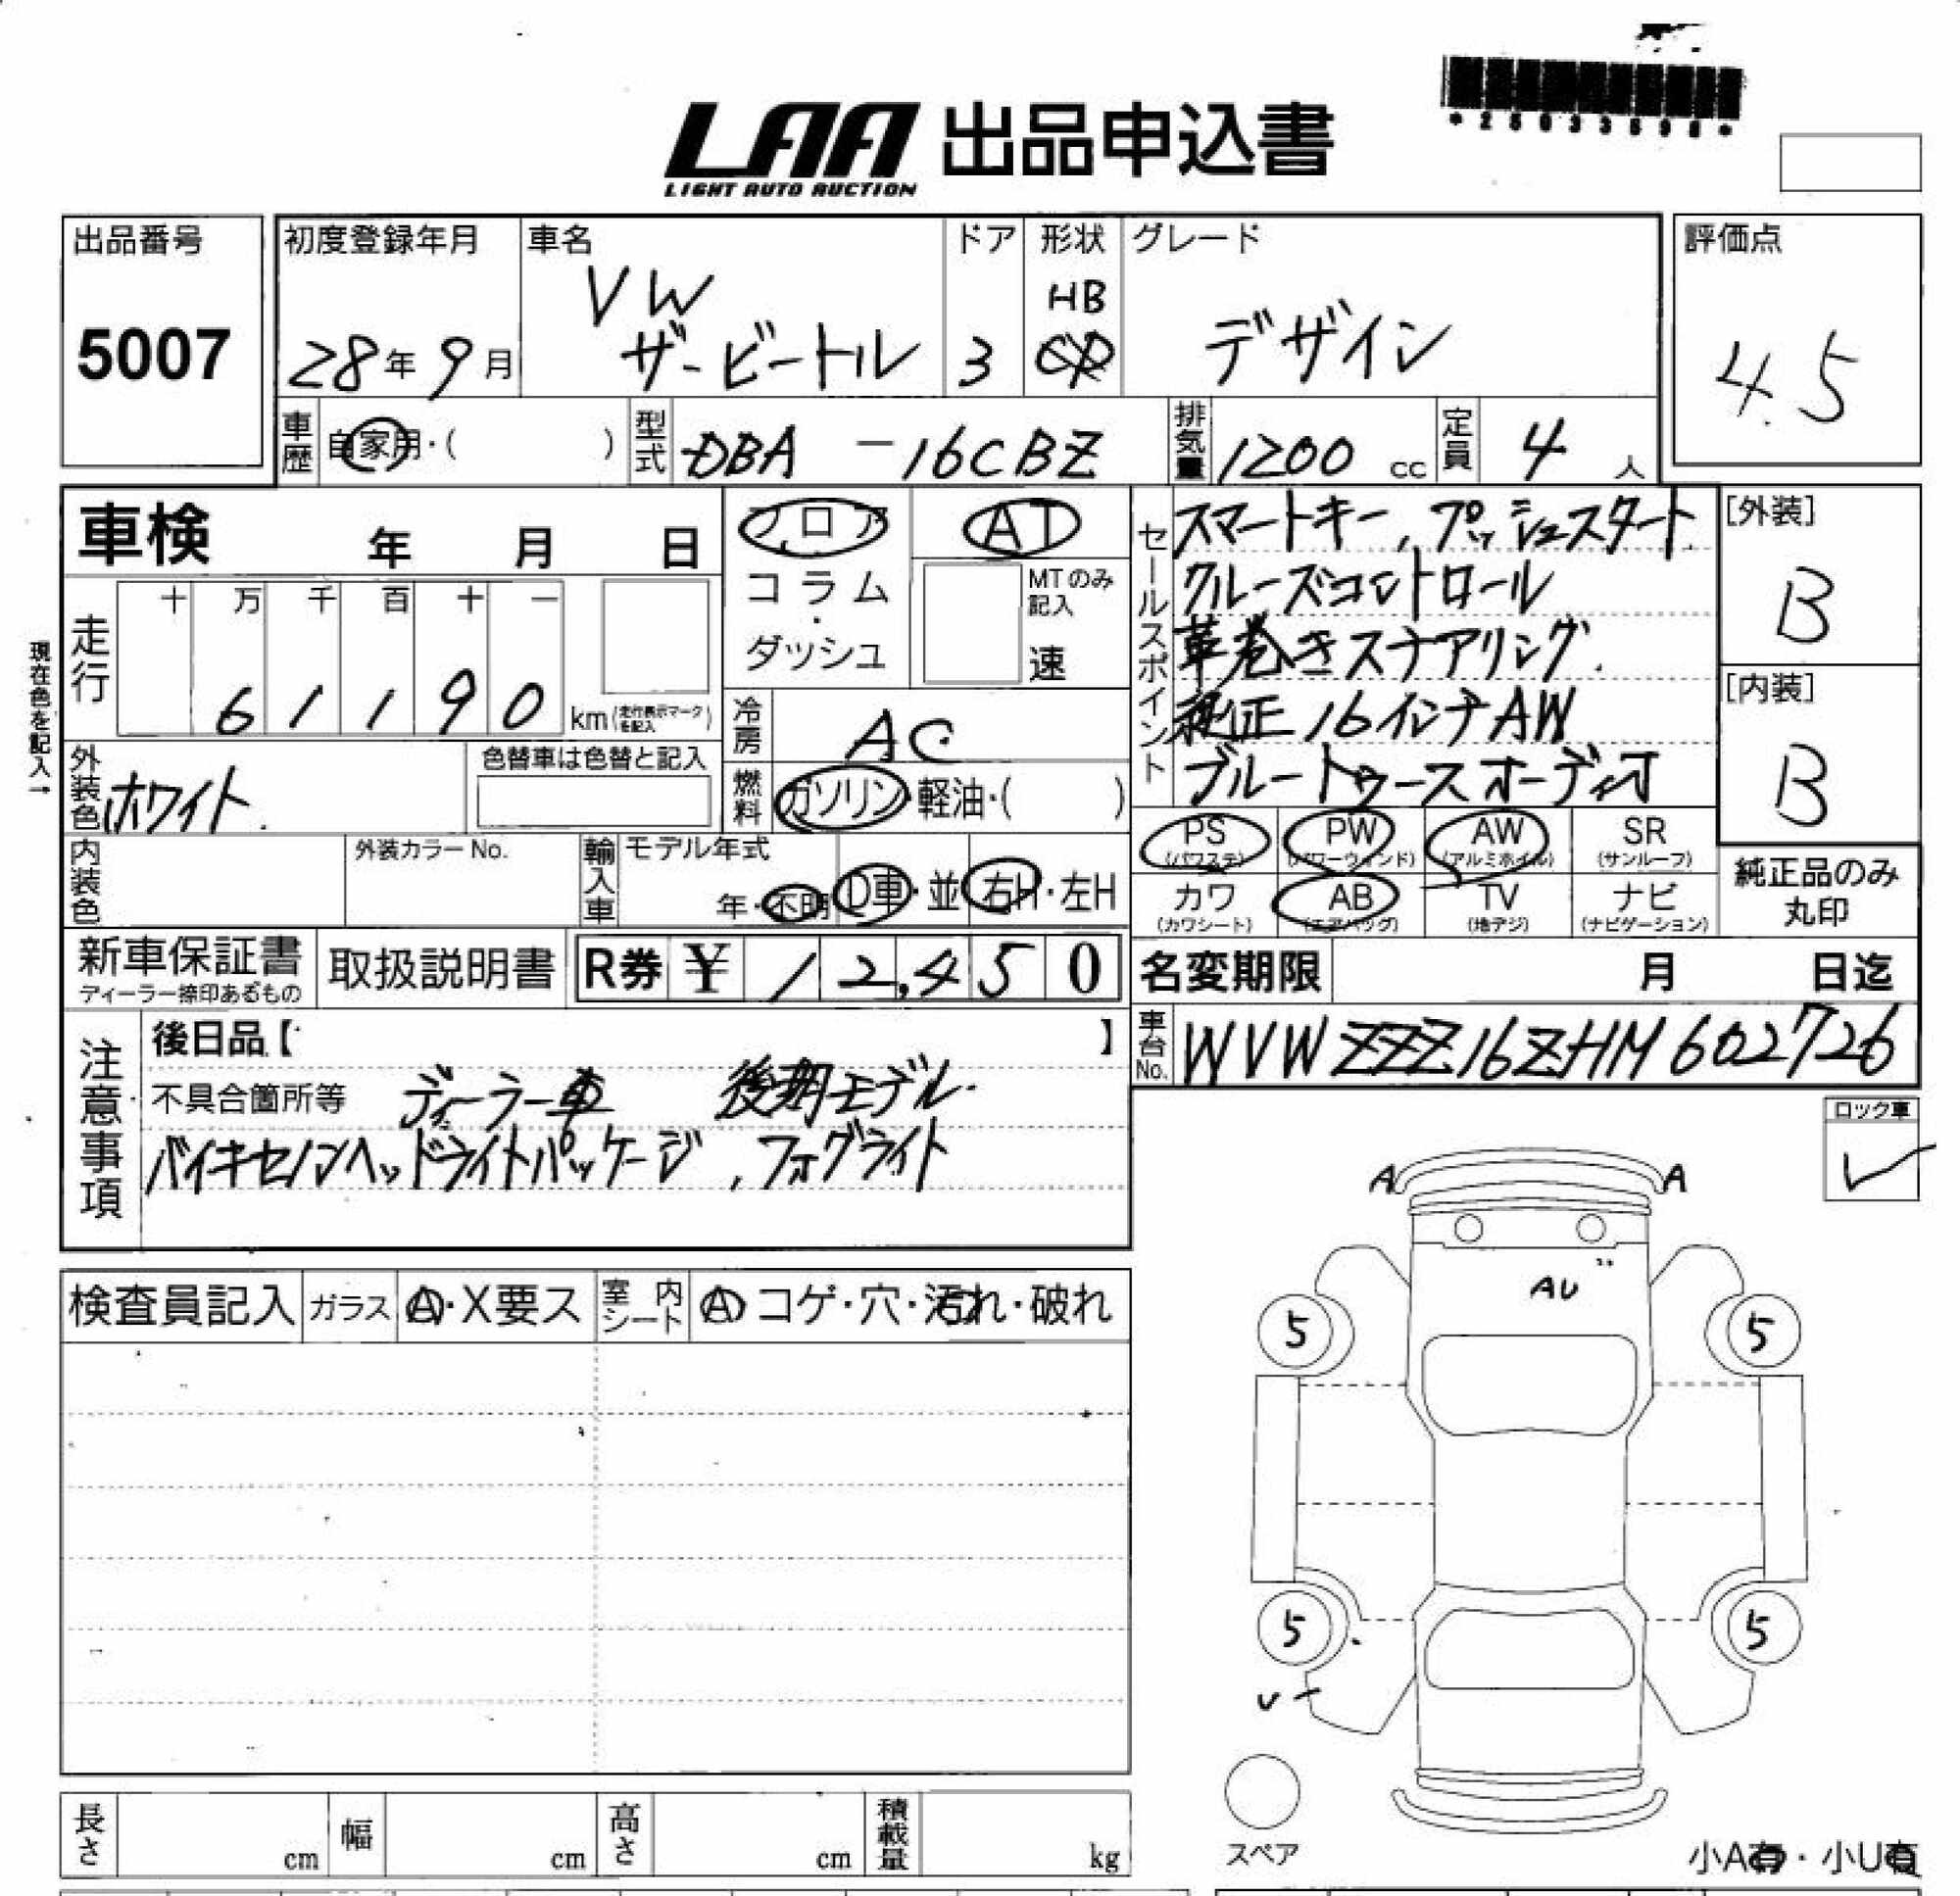 LAA 出品申込書
LIGHT AUTO AUCTION
出品番号
5007
初度登録年月
28年9月
車名
VW
ザ・ビートル
ドア
3
形状
HB
グレード
デザイン
評価点
4.5
車歴
自家用・( )
型式
DBA-16CBZ
排気量
1200 cc
定員
4 人
車検 年 月 日
現在色を記入→
走行
十 万 千 百 十 一
6 1 1 9 0 km (走行表示マークを記入)
外装色
ホワイト
色替車は色替と記入
内装色
外装カラーNo.
輸入車
モデル年式
年・不明
D車・並
右H・左H
フロア
コラム
・
ダッシュ
AT
MTのみ記入
速
冷房
AC
燃料
ガソリン・軽油・( )
セールスポイント
スマートキー, プッシュスタート
クルーズコントロール
革巻きステアリング.
純正16インチAW
ブルートゥースオーディオ
[外装]
B
[内装]
B
PS
(パワステ)
PW
(パワーウィンド)
AW
(アルミホイル)
SR
(サンルーフ)
カワ
(カワシート)
AB
(エアバッグ)
TV
(地デジ)
ナビ
(ナビゲーション)
純正品のみ
丸印
新車保証書
ディーラー捺印あるもの
取扱説明書
R券 ¥ 12,450
名変期限 月 日迄
車台No.
WVWZZZ16ZHM602726
注意事項
後日品【 】
不具合箇所等 ディーラー車 後期モデル
バイキセノンヘッドライトパッケージ, フォグライト
ロック車
✓
検査員記入
ガラス
A・X要ス
室内シート
A コゲ・穴・汚れ・破れ
A A
AU
5 5
5 5
スペア
小A有・小U有
長さ cm
幅 cm
高さ cm
積載量 kg